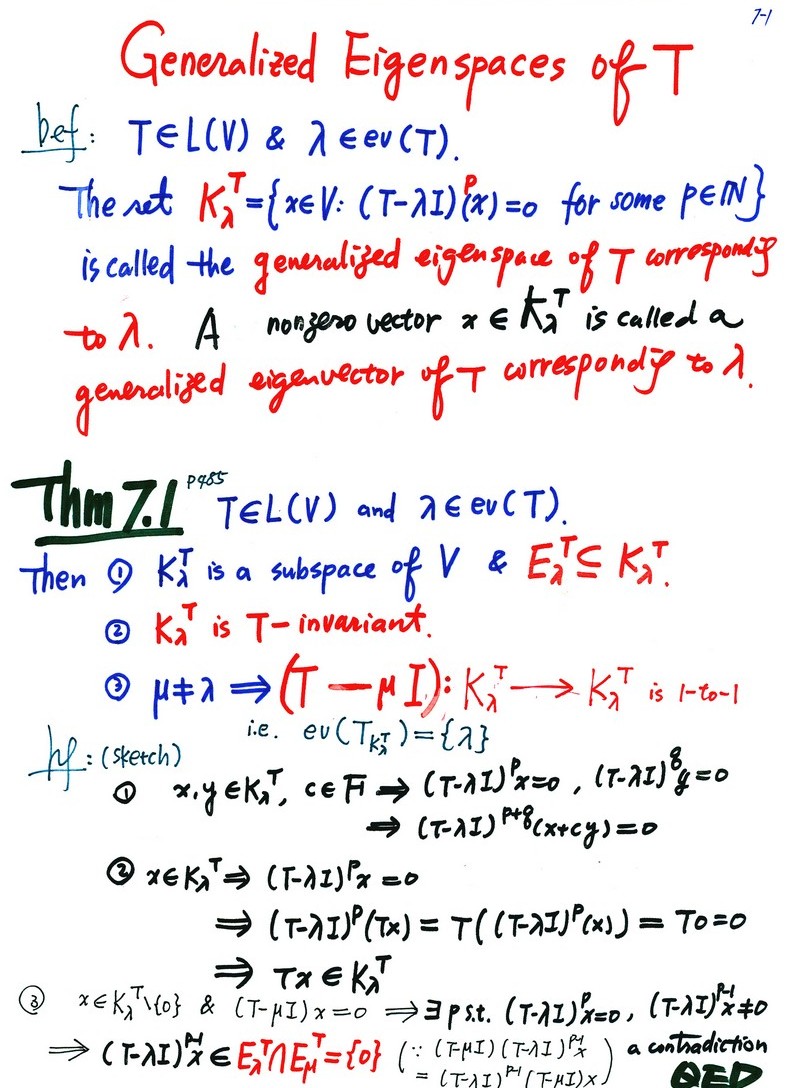 7-1
Generalized Eigenspaces of T
Def: T∈L(V) & λ∈ev(T).
The set K_λ^T={x∈V: (T-λI)^p(x)=0 for some p∈ℕ}
is called the generalized eigenspace of T corresponding
to λ. A nonzero vector x∈K_λ^T is called a
generalized eigenvector of T corresponding to λ.
Thm 7.1 P485 T∈L(V) and λ∈ev(T).
Then ① K_λ^T is a subspace of V & E_λ^T ⊆ K_λ^T.
② K_λ^T is T-invariant.
③ μ≠λ ⇒ (T-μI): K_λ^T → K_λ^T is 1-to-1
i.e. ev(T_{K_λ^T})={λ}
pf: (sketch)
① x,y∈K_λ^T, c∈F ⇒ (T-λI)^p x=0, (T-λI)^q y=0
⇒ (T-λI)^{p+q}(x+cy)=0
② x∈K_λ^T ⇒ (T-λI)^p x=0
⇒ (T-λI)^p(Tx) = T((T-λI)^p(x)) = T0=0
⇒ Tx∈K_λ^T
③ x∈K_λ^T\{0} & (T-μI)x=0 ⇒ ∃p s.t. (T-λI)^p x=0, (T-λI)^{p-1}x≠0
⇒ (T-λI)^{p-1}x ∈ E_λ^T∩E_μ^T={0} (∵ (T-μI)(T-λI)^{p-1}x a contradiction
= (T-λI)^{p-1}(T-μI)x) QED